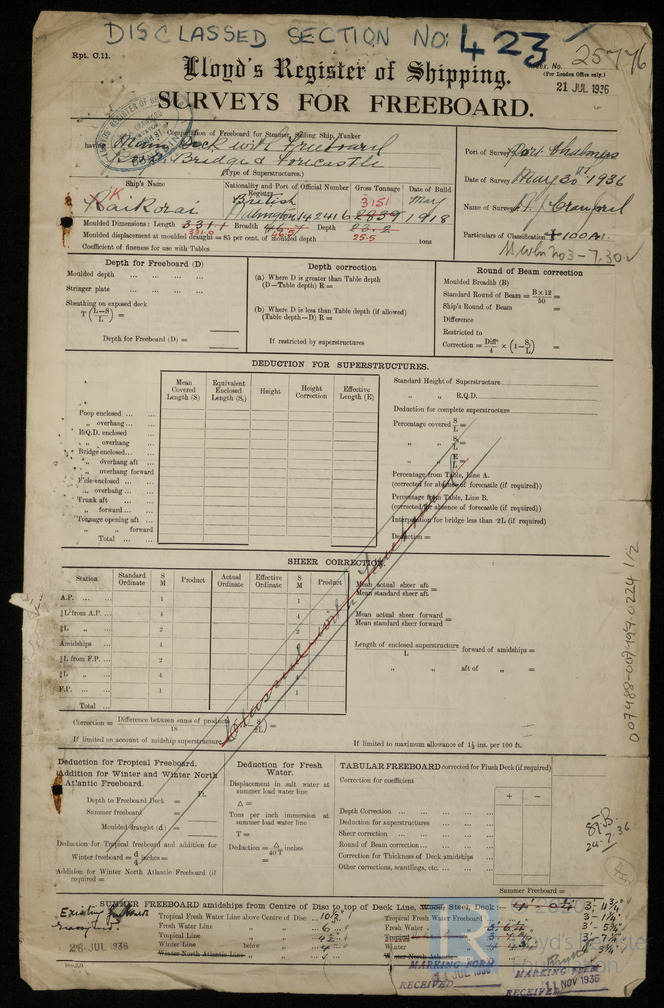 DISCLASSED SECTION NO: 423
25776
Rpt. C.11.
Lloyd's Register of Shipping.
(For London Office only.)
21 JUL 1936
SURVEYS FOR FREEBOARD.
Computation of Freeboard for Steamer, Sailing Ship, Tanker
having Main Deck with Freeboard
Bridge & Forecastle
(Type of Superstructures.)
Port of Survey Port Chalmers
Date of Survey May 30th 1936
Name of Surveyor
Particulars of Classification +100A1.
Ship's Name
Nationality and Port of Registry
Official Number
Gross Tonnage
Date of Build
Kaikorai
British
Wellington
142416
3151
2939
May 1918
Moulded Dimensions: Length 331.1 Breadth Depth 23.2
331.0 25.5
Moulded displacement at moulded draught = 85 per cent. of moulded depth tons
Coefficient of fineness for use with Tables
Depth for Freeboard (D)
Moulded depth
Stringer plate
Sheathing on exposed deck
T (L-S/L) =
Depth for Freeboard (D) =
Depth correction
(a) Where D is greater than Table depth
(D—Table depth) R =
(b) Where D is less than Table depth (if allowed)
(Table depth—D) R =
If restricted by superstructures
Round of Beam correction
Moulded Breadth (B)
Standard Round of Beam = B×12/50 =
Ship's Round of Beam =
Difference
Restricted to
Correction = Diff/4 × (1−S/L) =
DEDUCTION FOR SUPERSTRUCTURES.
Mean Covered Length (S)
Equivalent Enclosed Length (S₁)
Height
Height Correction
Effective Length (E)
Poop enclosed
„ overhang
R.Q.D. enclosed
„ overhang
Bridge enclosed
„ overhang aft
„ overhang forward
F'cle enclosed
„ overhang
Trunk aft
„ forward
Tonnage opening aft
„ „ forward
Total
Standard Height of Superstructure
„ „ R.Q.D.
Deduction for complete superstructure
Percentage covered S/L =
„ S₁/L =
„ E/L =
Percentage from Table, Line A.
(corrected for absence of forecastle (if required))
Percentage from Table, Line B.
(corrected for absence of forecastle (if required))
Interpolation for bridge less than ·2L (if required)
Deduction =
SHEER CORRECTION.
Station
Standard Ordinate
S M
Product
Actual Ordinate
Effective Ordinate
S M
Product
A.P. 1 1
⅙L from A.P. 4 4
⅓L „ 2 2
Amidships 4 4
⅓L from F.P. 2 2
⅙L „ 4 4
F.P. 1 1
Total
Mean actual sheer aft / Mean standard sheer aft =
Mean actual sheer forward / Mean standard sheer forward =
Length of enclosed superstructure / L forward of amidships =
„ „ aft of „ =
Correction = Difference between sums of products / 18
If limited on account of midship superstructure.
If limited to maximum allowance of 1½ ins. per 100 ft.
007488-007499-0224 1/2
Deduction for Tropical Freeboard.
Addition for Winter and Winter North Atlantic Freeboard.
Ft.
Depth to Freeboard Deck =
Summer freeboard =
Moulded draught (d) =
Deduction for Tropical freeboard and addition for
Winter freeboard = d/4 inches =
Addition for Winter North Atlantic Freeboard (if required) =
Deduction for Fresh Water.
Displacement in salt water at summer load water line
Δ =
Tons per inch immersion at summer load water line
T =
Deduction = Δ/40T inches
=
TABULAR FREEBOARD corrected for Flush Deck (if required)
Correction for coefficient
+ −
Depth Correction
Deduction for superstructures
Sheer correction
Round of Beam correction
Correction for Thickness of Deck amidships
Other corrections, scantlings, etc.
Summer Freeboard =
24.7.36
SUMMER FREEBOARD amidships from Centre of Disc to top of Deck Line, Wood, Steel, Deck:—
Tropical Fresh Water Line above Centre of Disc
Fresh Water Line „ „
Tropical Line „ „
Winter Line below „
Winter North Atlantic Line „ „
Tropical Fresh Water Freeboard
Fresh Water „
Tropical „
Winter „
Winter North Atlantic „
28 JUL 1936
MARKING FORM
RECEIVED JUL 1936
MARKING FORM
RECEIVED 11 NOV 1936
LR
Lloyd's Register
Foundation